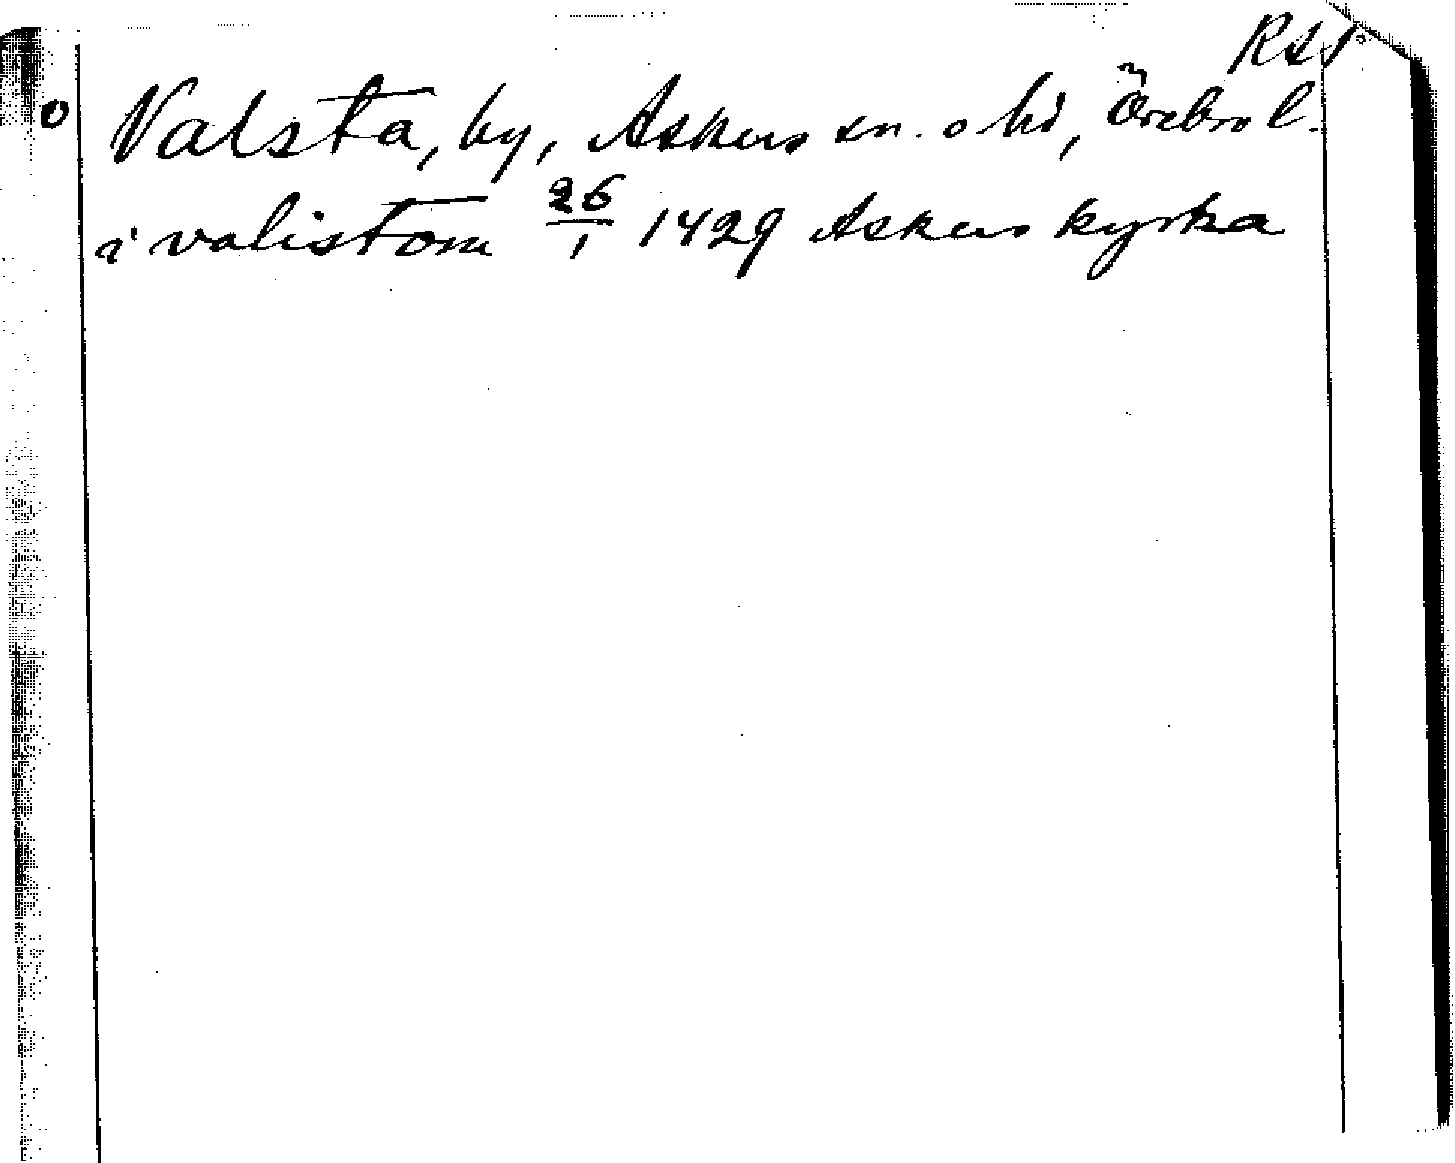 Valsta, by, Askers sn. o hd, Örebro l.
i valistom 26/1 1429 Askers kyrka